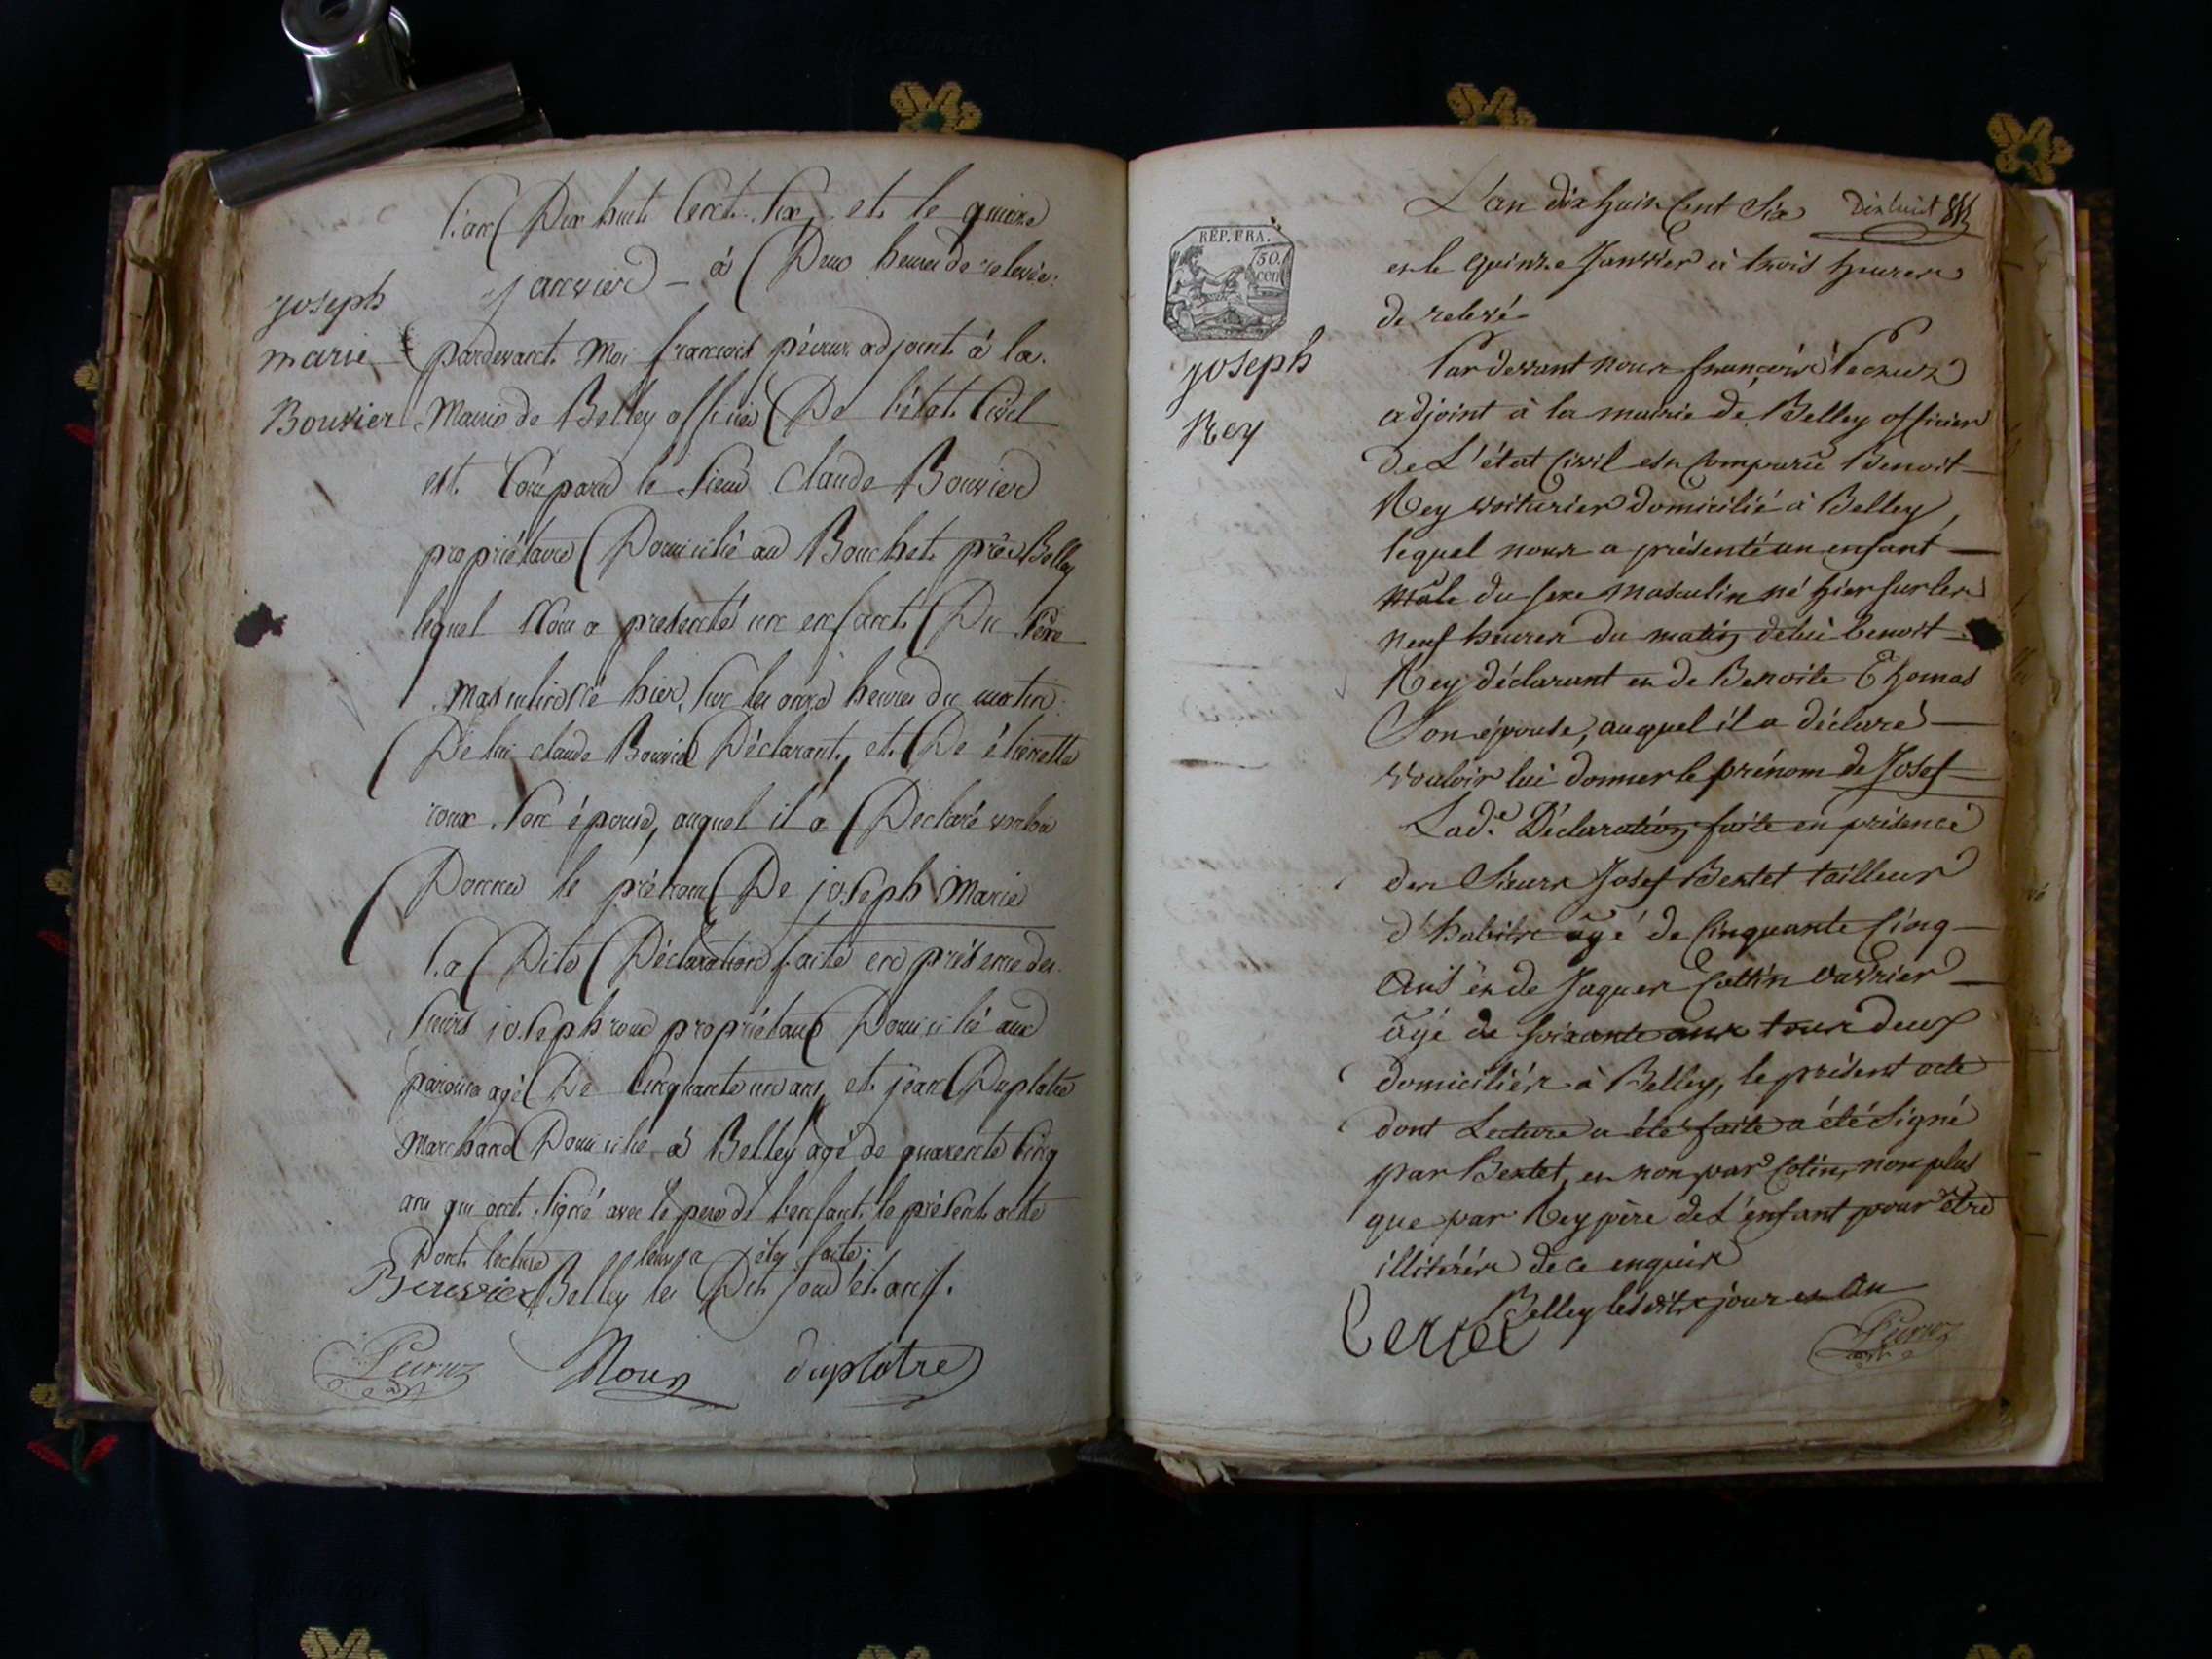 L'an Dix huit Cent Six, et le quinze
janvier - à Deux heures de relevée:
joseph
marie
Bouvier
pardevant Moi francois pécruz adjoint à la
Mairie de Belley officier De l'état Civil
est Comparu le Sieur Claude Bouvier
propriétaire Domicilié au Bouchet près Belley
lequel Nous a presenté un enfant Du Sexe
Masculin Né hier, sur les onze heures du matin
De lui claude Bouvier Déclarant, et De étienette
roux Son épouse, auquel il a Declaré vouloir
Donner le prénom De joseph Marie
La Dite Déclaration faite en présence des
Sieurs joseph roux propriétaire Domicilié au
agé De Cinquante un ans, et jean Duplatre
Marchand Domicilié à Belley agé de quarente Cinq
ans qui ont signé avec le pere de l'enfant le présent acte
Dont lecture leur a été faite:
Bouvier Belley les Dit jour et an.
Pécruz Roux duplatre
L'an dix huit Cent Six Dix huit
et le quinze Janvier à trois heures
de relevé
REP. FRA.
50.
cent
joseph
Rey
Pardevant nous françois Pecruz
adjoint à la mairie de Belley officier
de L'état Civil est Comparu Benoit
Rey voiturier domicilié à Belley,
lequel nous a présenté un enfant
mâle du sexe masculin né hier sur les
neuf heures du matin de lui benoit
Rey déclarant et de Benoite Thomas
Son épouse, auquel il a déclaré
vouloir lui donner le prénom de Josef
Lad.e Déclaration faite en présence
des Sieurs Josef Bertet tailleur
d'habits agé de Cinquante Cinq
Ans et de Jaques Cottin ouvrier
âgé de soixante ans tous deux
domiciliés à Belley, le présent acte
dont Lecture a été faite a été Signé
par Bertet, et non par Cotin, non plus
que par Rey père de L'enfant pour être
illitérés de ce enquis
Belley lesdits jour et An
Bertet Pécruz